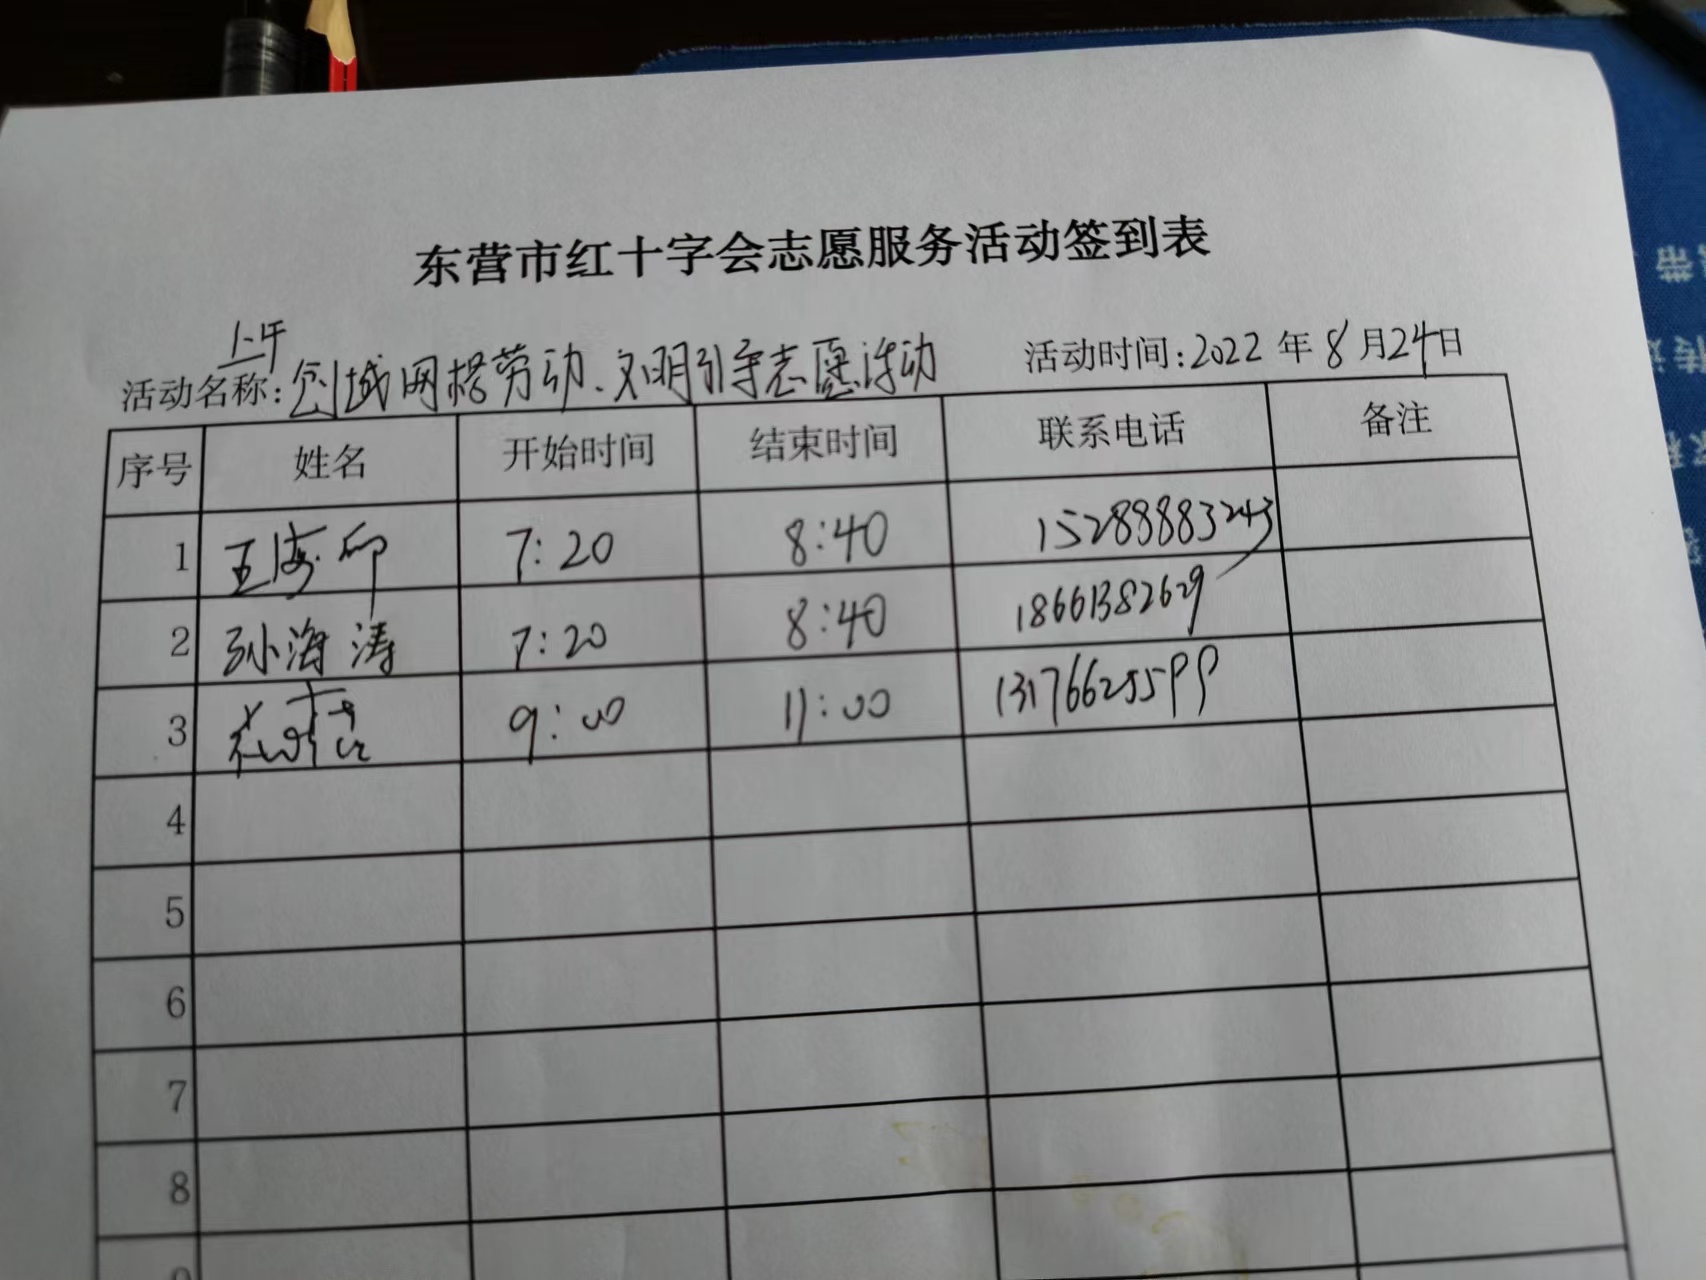 东营市红十字会志愿服务活动签到表
上午
活动名称:创城网格劳动、文明引导志愿活动 活动时间:2022年8月24日
序号 姓名 开始时间 结束时间 联系电话 备注
1 王海 7:20 8:40 15288883243
2 孙海涛 7:20 8:40 18661382629
3 9:00 11:00 13176625599
4
5
6
7
8
9